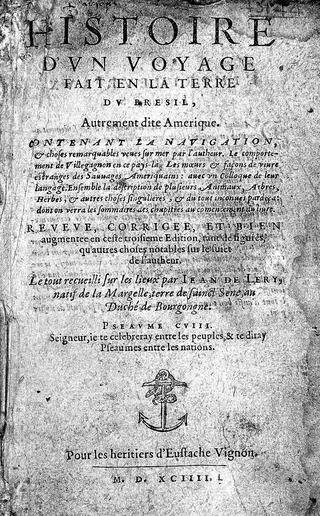 HISTOIRE
D'VN VOYAGE
FAIT EN LA TERRE
DV BRESIL,
Autrement dite Amerique.
CONTENANT LA NAVIGATION,
& choses remarquables veues sur mer par l'autheur. Le comporte-
ment de Villegagnon en ce pays-la. Les mœurs & façons de viure
estranges des Sauuages Ameriquains: auec vn colloque de leur
langage. Ensemble la description de plusieurs Animaux, Arbres,
Herbes, & autres choses singulieres, & du tout inconues par deça:
dont on verra les sommaires des chapitres au commencement du liure.
REVEVE, CORRIGEE, ET BIEN
augmentee en ceste troisieme Edition, tant de figures,
qu'autres choses notables sur le suiet
de l'autheur.
Le tout recueilli sur les lieux par IEAN DE LERY,
natif de la Margelle, terre de sainct Sene, au
Duché de Bourgongne.
PSEAVME CVIII.
Seigneur, ie te celebreray entre les peuples, & te diray
Pseaumes entre les nations.
Pour les heritiers d'Eustache Vignon.
M. D. XCIIII.